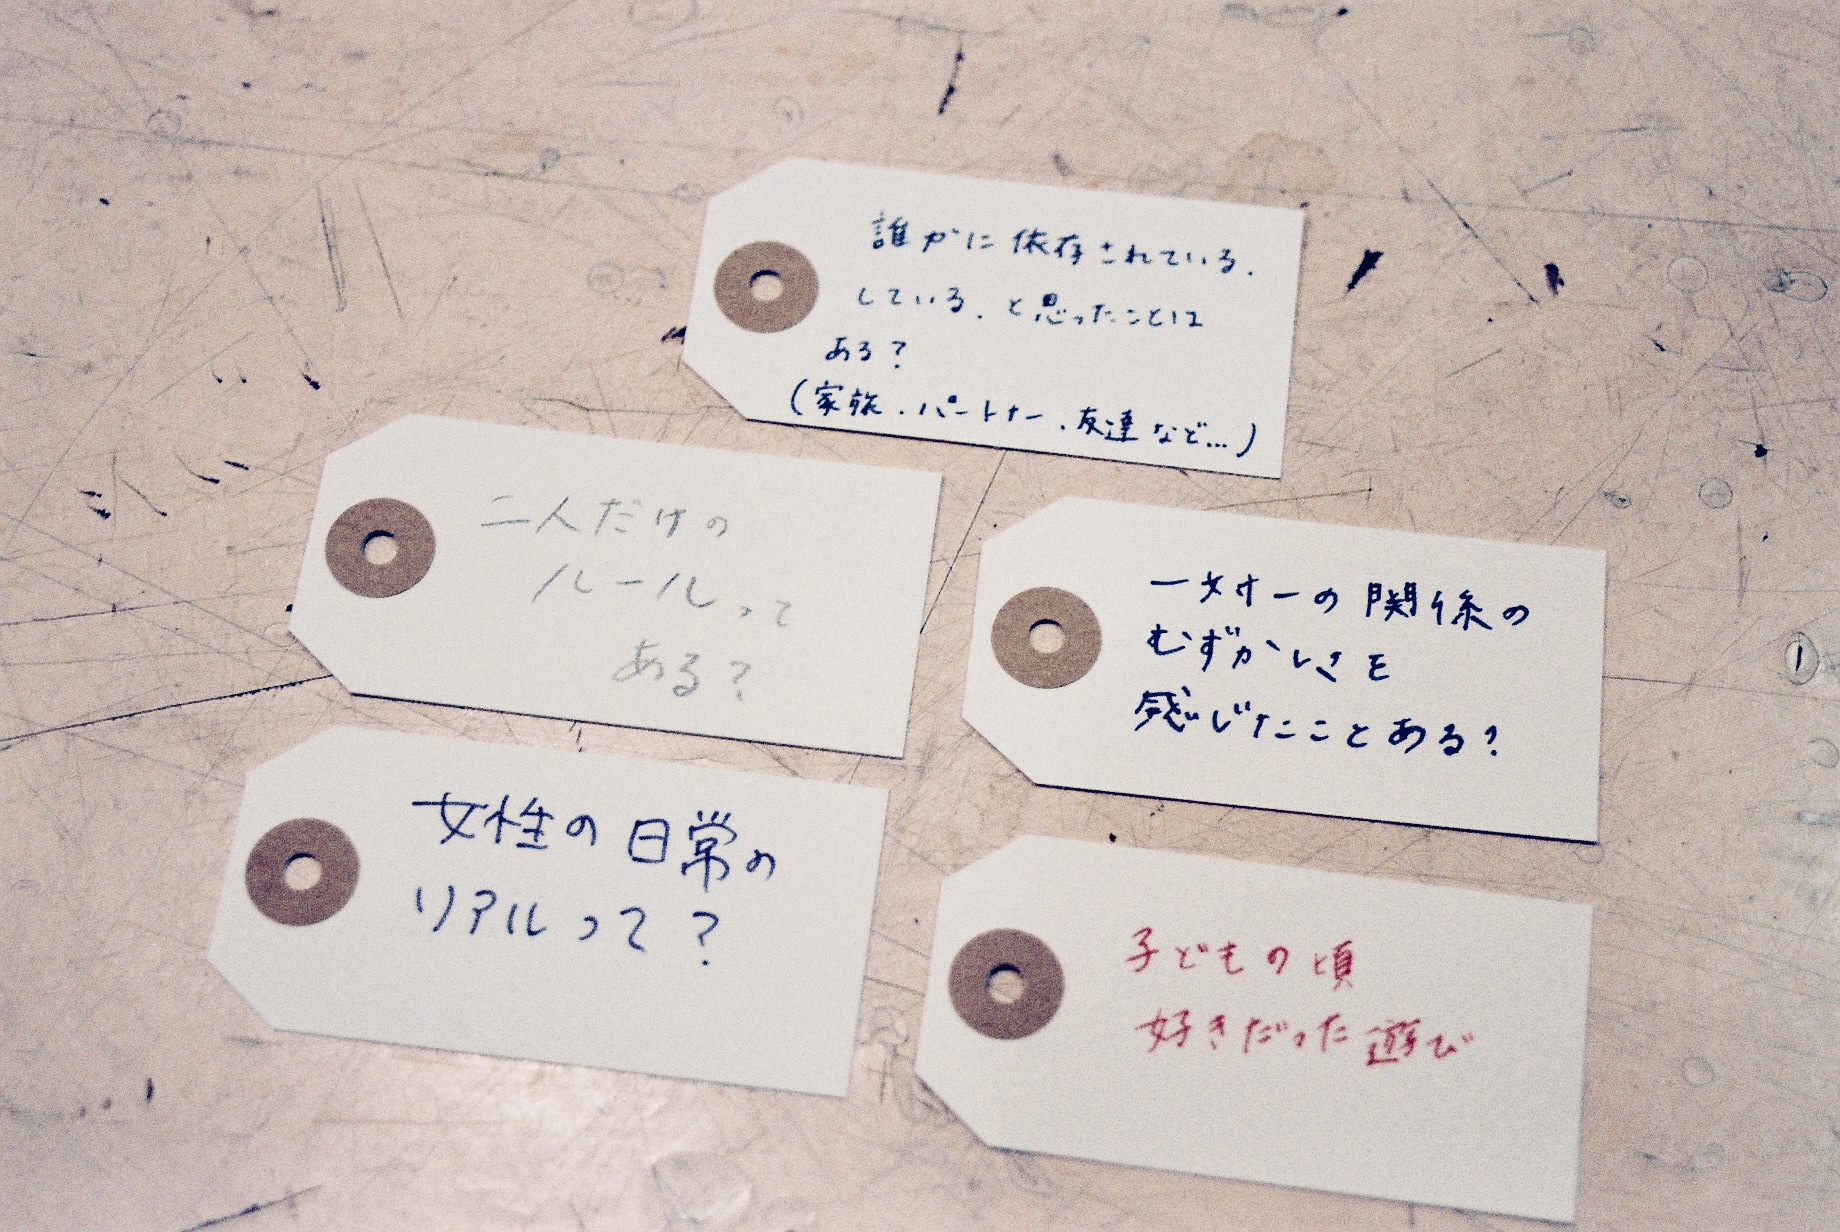 誰かに依存されている.
している.と思ったことは
ある?
(家族.パートナー.友達など...)
二人だけの
ルールって
ある?
一対一の関係の
むずかしさを
感じたことある?
女性の日常の
リアルって?
子どもの頃
好きだった遊び